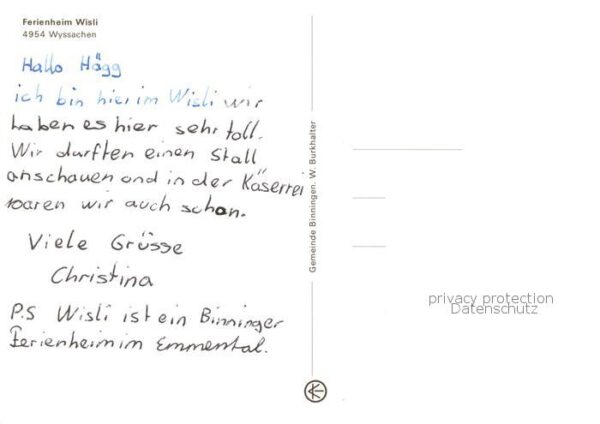 Ferienheim Wisli
4954 Wyssachen
Hallo Hägg
ich bin hier im Wisli wir
haben es hier sehr toll.
Wir durften einen Stall
anschauen und in der Käserrei
waren wir auch schon.
Viele Grüsse
Christina
P.S Wisli ist ein Binninger
Ferienheim im Emmental.
Gemeinde Binningen. W. Burkhalter
privacy protection
Datenschutz